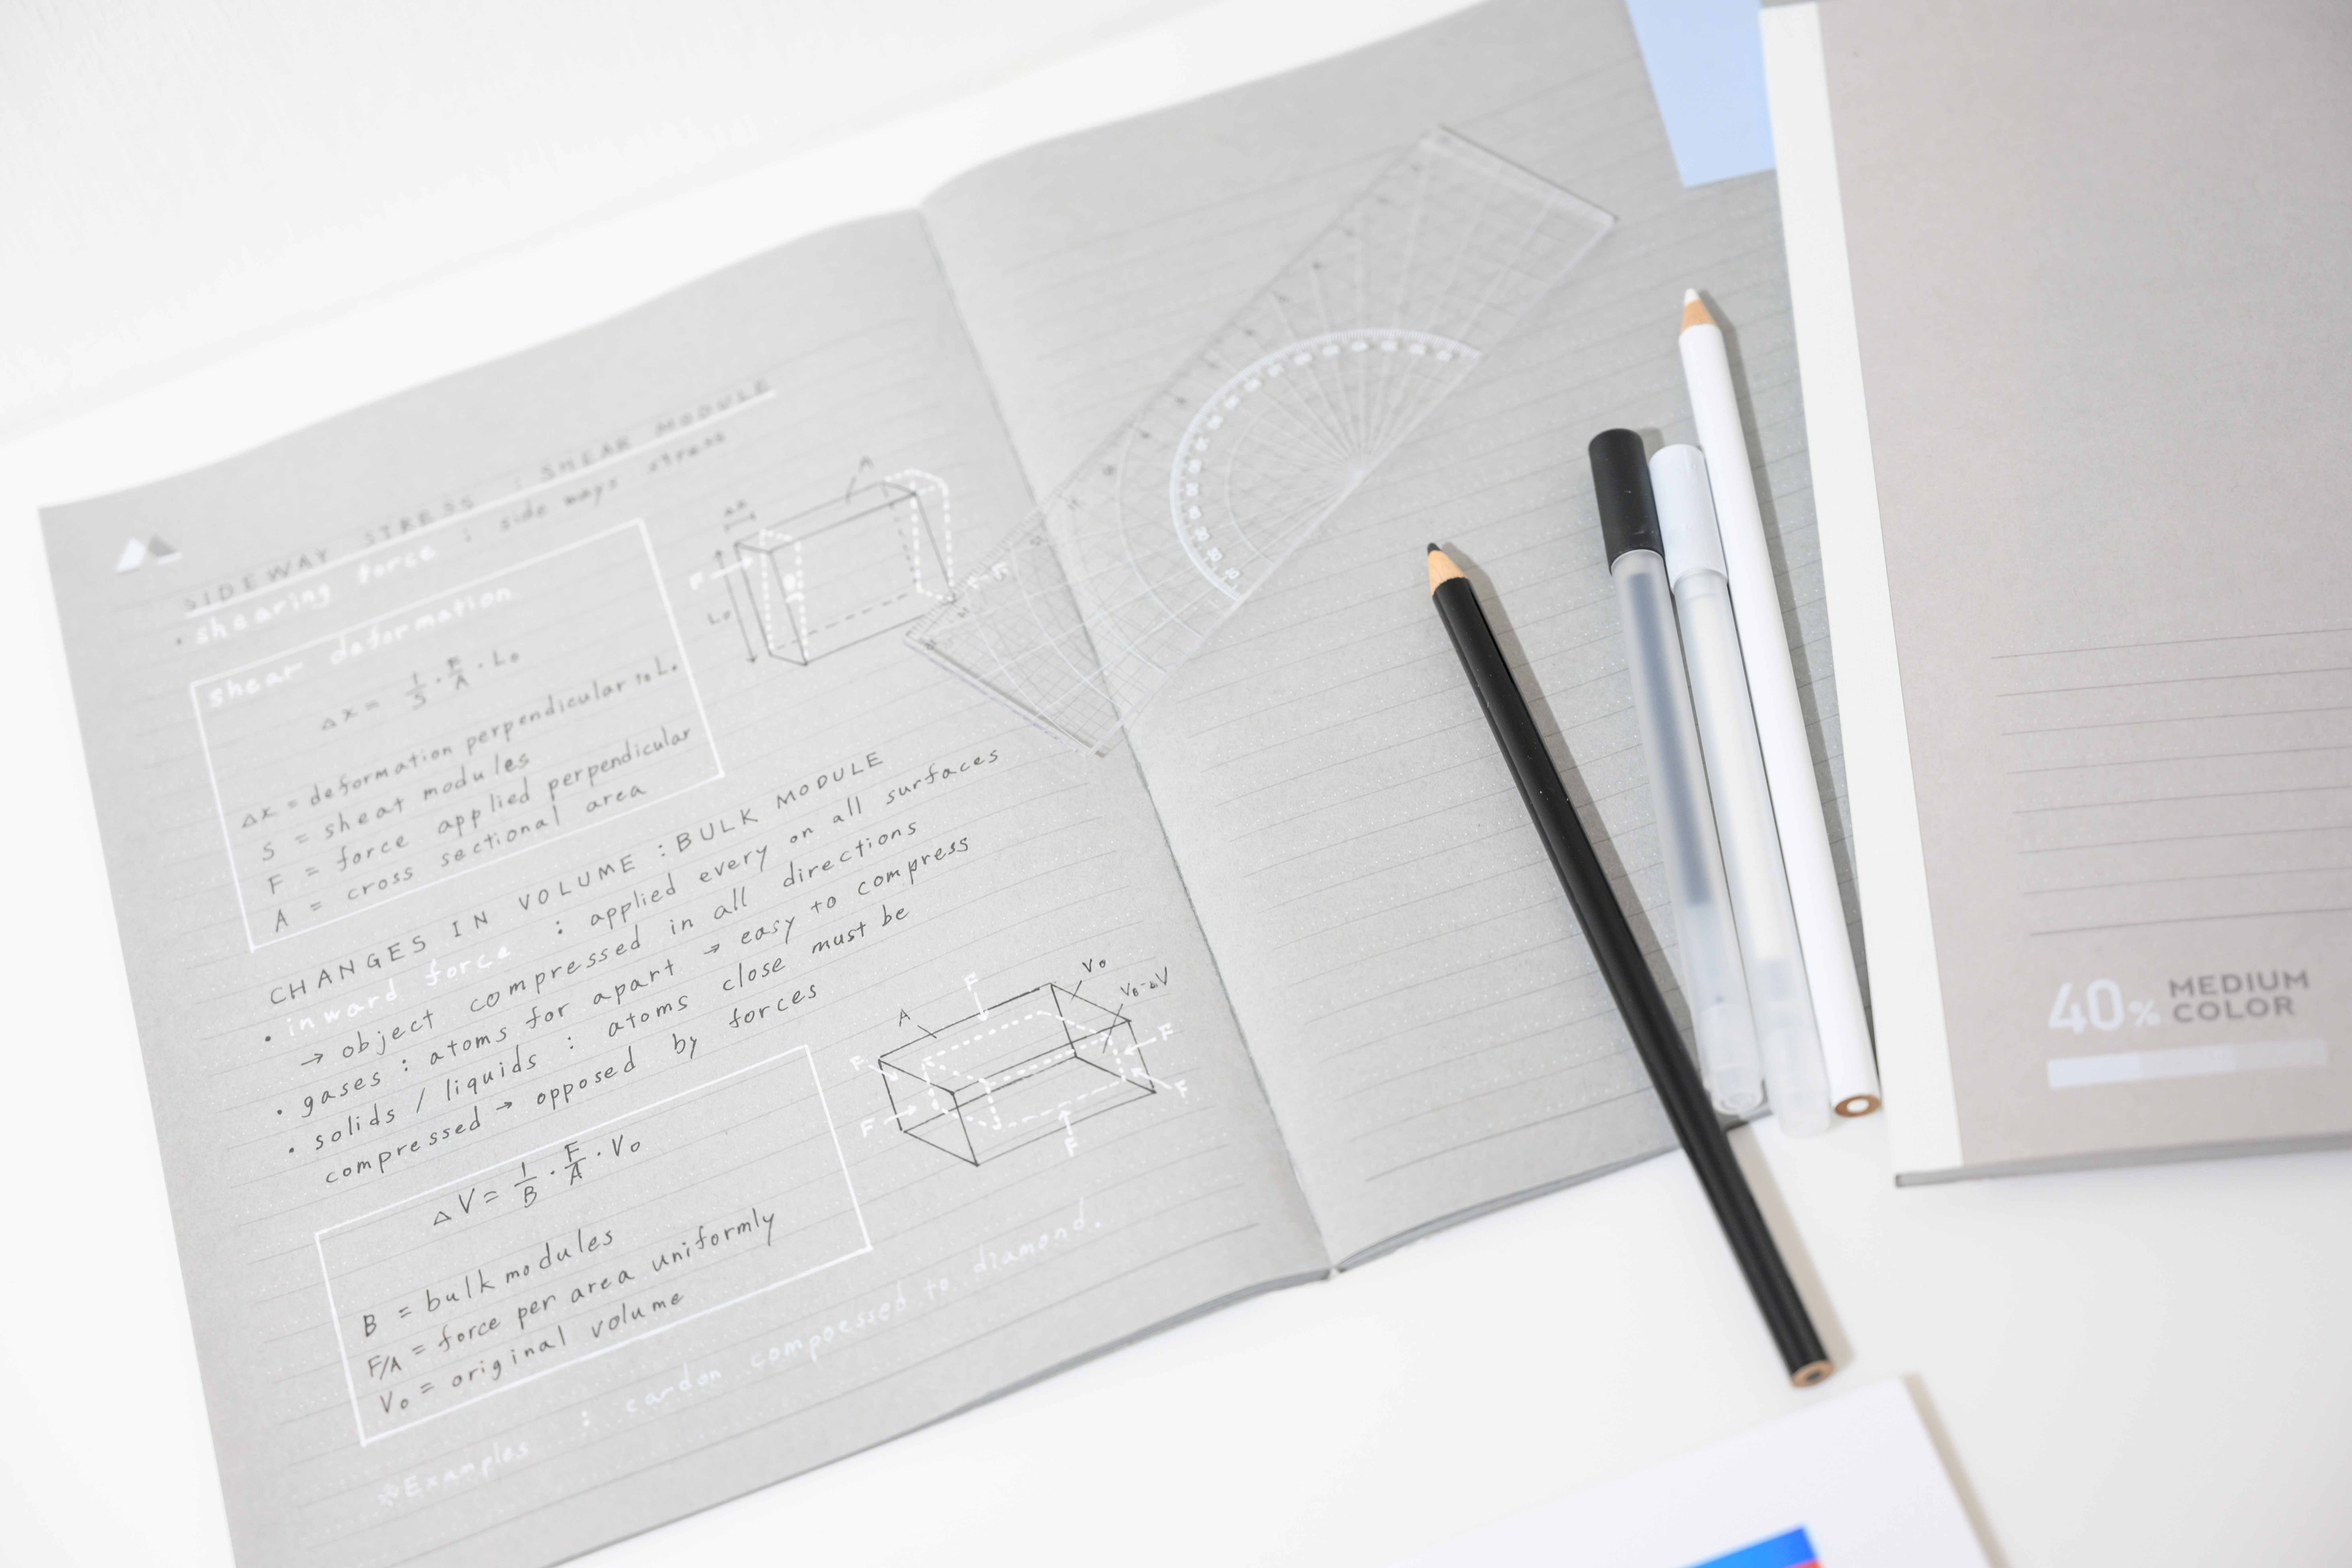 SIDEWAY STRESS : SHEAR MODULE
• shearing force : side ways stress
shear deformation
Δx = 1/S · F/A · L₀
Δx = deformation perpendicular to L.
S = sheat modules
F = force applied perpendicular
A = cross sectional area
A
Δx
F
L₀
CHANGES IN VOLUME : BULK MODULE
• inward force : applied every on all surfaces
→ object compressed in all directions
• gases : atoms for apart → easy to compress
• solids / liquids : atoms close must be
compressed → opposed by forces
ΔV = 1/B · F/A · V₀
B = bulk modules
F/A = force per area uniformly
V₀ = original volume
A
F
V₀
V₀-ΔV
F
F
F
F
F
※Examples : cardon compoessed to diamond.
40% MEDIUM
COLOR